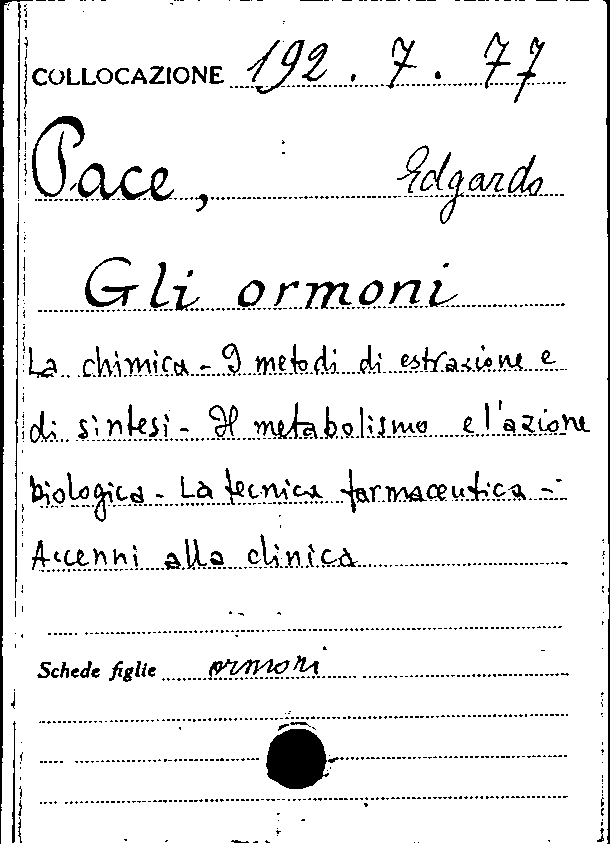 COLLOCAZIONE 192.7.77
Pace, Edgardo
Gli ormoni
La chimica - I metodi di estrazione e
di sintesi - Il metabolismo e l'azione
biologica - La tecnica farmaceutica -
Accenni alla clinica
Schede figlie ormoni